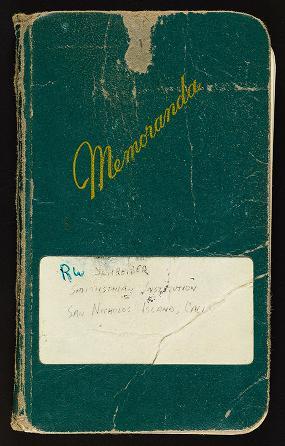 Memoranda
RW SCHREIBER
SMITHSONIAN INSTITUTION
SAN NICHOLOS ISLAND, CALI